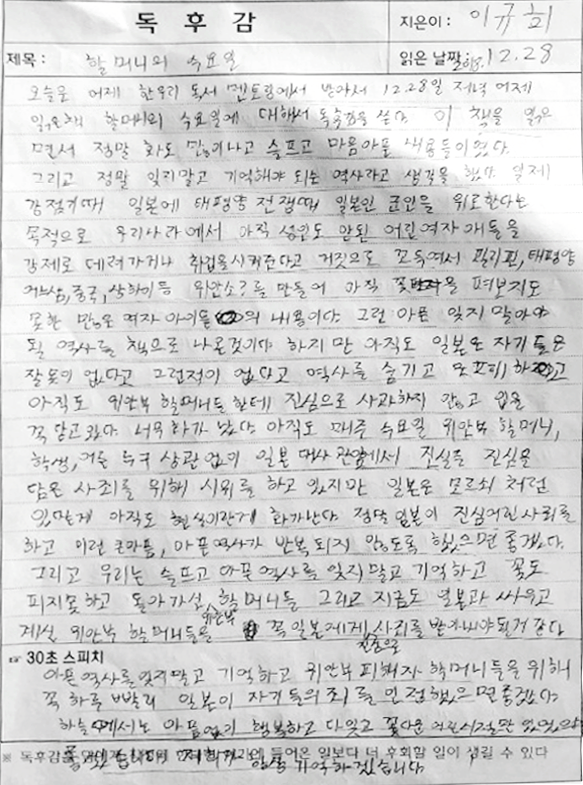 독후감
지은이 : 이규희
제목 : 할머니의 수요일
읽은 날짜 : 2018.12.28
오늘은 어제 한우리 독서 멘토링에서 받아서 12.28일 저녁 어제
읽은책 할머니의 수요일에 대해서 독후감을 쓴다 이 책을 읽으
면서 정말 화도 많이나고 슬프고 마음아픈 내용들이였다.
그리고 정말 잊지말고 기억해야 되는 역사라고 생각을 했다 일제
강점기때 일본에 태평양 전쟁때 일본인 군인을 위로한다는
목적으로 우리나라에서 아직 성인도 안된 어린여자 애들을
강제로 데려가거나 취업을시켜준다고 거짓으로 꼬득여서 필리핀, 태평양
중국, 상하이등 위안소?를 만들어 아직 꽃을 펴보지도
못한 많은 여자 아이들의 내용이다 그런 아픈 잊지 말아야
될 역사를 책으로 나온것이다 하지만 아직도 일본은 자기들은
잘못이 없다고 그런적이 없다고 역사를 숨기고 또 회피 하고
아직도 위안부 할머니들 한테 진심으로 사과하지 않고 입을
꼭 닫고있다 너무 화가 났다 아직도 매주 수요일 위안부 할머니,
학생, 어른 누구 상관 없이 일본 대사관앞에서 진실을 진심을
담은 사죄를 위해 시위를 하고 있지만 일본은 모르쇠 처럼
있다는게 아직도 현실이란게 화가난다 정말 일본이 진심어린 사죄를
하고 이런 큰아픔, 아픈역사가 반복 되지 않도록 했으면 좋겠다.
그리고 우리는 슬프고 아픈역사를 잊지말고 기억하고 꽃도
피지못하고 돌아가신 위안부 할머니들 그리고 지금도 일본과 싸우고
계실 위안부 할머니들을 꼭 일본에게 진심으로 사죄를 받아내야될거 같다
☞ 30초 스피치
아픈 역사를잊지말고 기억하고 위안부 피해자 할머니들을 위해
꼭 하루 빨리 일본이 자기들의 죄를 인정했으면좋겠다
하늘에서는 아픔없이 행복하고 다잊고 꽃다운 어린시절만
※ 독후감을 들어온 일보다 더 후회할 일이 생길 수 있다
기억하겠습니다